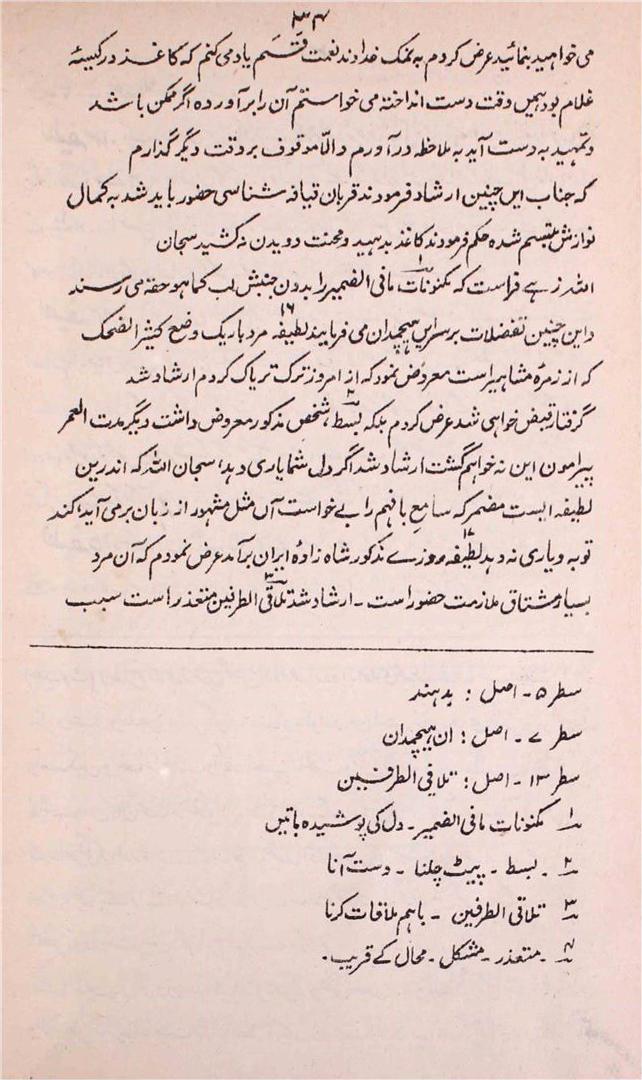 ۳۴
می خواهید بنمائید عرض کردم به نمک خداوند نعمت قسم یاد می کنم که کاغذ در کیسۂ
غلام بود ہمیں وقت دست انداختہ می خواستم آن را برآوردہ اگر ممکن باشد
و تمہید بہ دست آید بہ ملاحظہ در آورم والّا موقوف بر وقت دیگر گذارم
کہ جناب ایں چنین ارشاد فرمودند قربان قیافہ شناسی حضور باید شد بہ کمال
نوازش متبسم شدہ حکم فرمودند کاغذ بدہید و محنت دویدن نہ کشید سبحان
اللہ زہے فراست کہ مکنونات۱ مافی الضمیر را بدون جنبش لب کما ہو حقہ می رسند
و این چنین تفضلات بر سر ایں ہیچمدان می فرمایند لطیفہ۱۶ مرد باریک وضع کثیر الضحک
کہ از زمرۂ مشاہیر است معروض نمود کہ از امروز ترک تریاک کردم ارشاد شد
گرفتار قبض خواہی شد عرض کردم بلکہ بسط۲، شخص مذکور معروض داشت دیگر مدت العمر
پیرامون این نہ خواہم گشت ارشاد شد اگر دل شما یاری دہد، سبحان اللہ کہ اندرین
لطیفہ ایست مضمر کہ سامع با فہم را بے خواست آں مثل مشہور از زبان بر می آید، کند
توبہ و یاری نہ دہد لطیفہ۱۷ روزے مذکور شاہ زادۂ ایران برآمد عرض نمودم کہ آن مرد
بسیار مشتاق ملازمت حضور است ۔ ارشاد شد تلاقی۳ الطرفین متعذر است سبب
سطر ۵ ۔ اصل : بدہند
سطر ۷ ۔ اصل : ان ہیچمدان
سطر ۱۳ ۔ اصل : تلافی الطرفین
۱ مکنونات مافی الضمیر ۔ دل کی پوشیدہ باتیں
۲ ۔ بسط ۔ پیٹ چلنا ۔ دست آنا
۳ تلاقی الطرفین ۔ باہم ملاقات کرنا
۴ ۔ متعذر ۔ مشکل ۔ محال کے قریب ۔